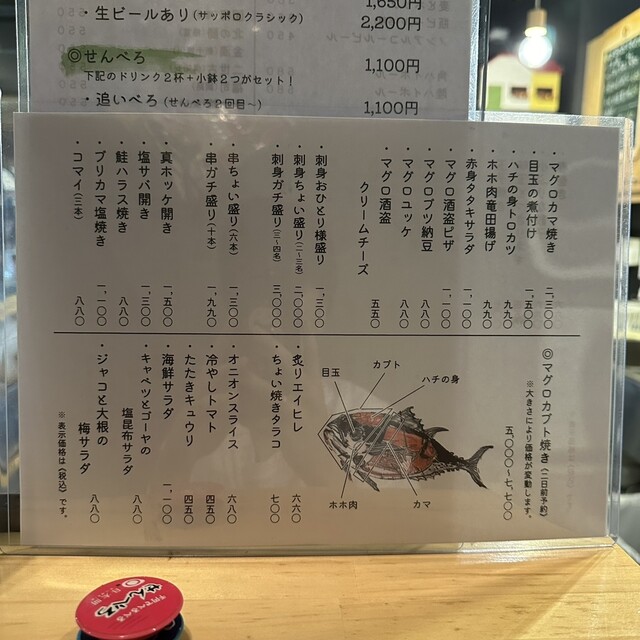 ・生ビールあり（サッポロクラシック）
1,650円
2,200円
◎せんべろ
下記のドリンク２杯＋小鉢２つがセット！
1,100円
・追いべろ（せんべろ２回目～）
1,100円
・マグロのカマ焼き 二、三〇〇
・目玉の煮付け 一、五〇〇
・ハチの身トロカツ 九九〇
・ホホ肉竜田揚げ 九九〇
・赤身タタキサラダ 一、一〇〇
・マグロ酒盗ピザ 一、一〇〇
・マグロブツ納豆 八八〇
・マグロユッケ 八八〇
・マグロ酒盗
クリームチーズ 五五〇
・刺身おひとり様盛り 一、三〇〇
・刺身ちょい盛り（二～三名） 二、〇〇〇
・刺身ガチ盛り（三～四名） 三、〇〇〇
・串ちょい盛り（六本） 一、三〇〇
・串ガチ盛り（十本） 一、九九〇
・真ホッケ開き 一、五〇〇
・塩サバ開き 一、三〇〇
・鮭ハラス焼き 八八〇
・ブリカマ塩焼き 一、一〇〇
・コマイ（三本） 八八〇
◎マグロカブト焼き（二日前予約）
※大きさにより価格が変動します。
五、〇〇〇～七、七〇〇
カブト
目玉
ハチの身
ホホ肉
カマ
・炙りエイヒレ 六六〇
・ちょい焼きタラコ 七〇〇
・オニオンスライス 六八〇
・冷やしトマト 四五〇
・たたきキュウリ 四五〇
・海鮮サラダ 一、一〇〇
・キャベツとゴーヤの
塩昆布サラダ 八八〇
・ジャコと大根の
梅サラダ 八八〇
※表示価格は（税込）です。
せんべろ